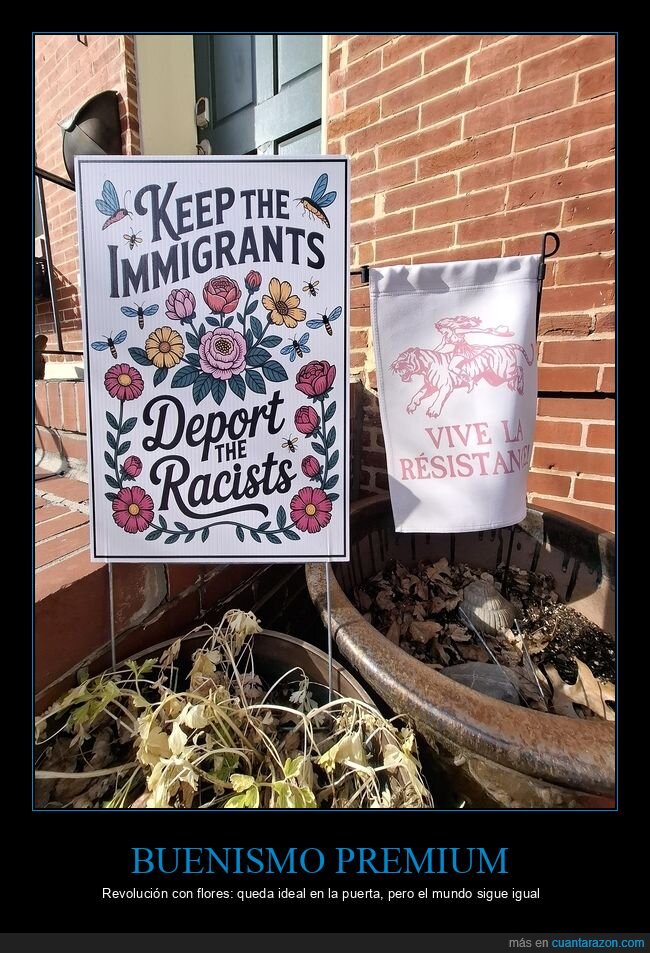 KEEP THE
IMMIGRANTS
Deport
THE
Racists
VIVE LA
BUENISMO PREMIUM
Revolución con flores: queda ideal en la puerta, pero el mundo sigue igual
más en cuantarazon.com